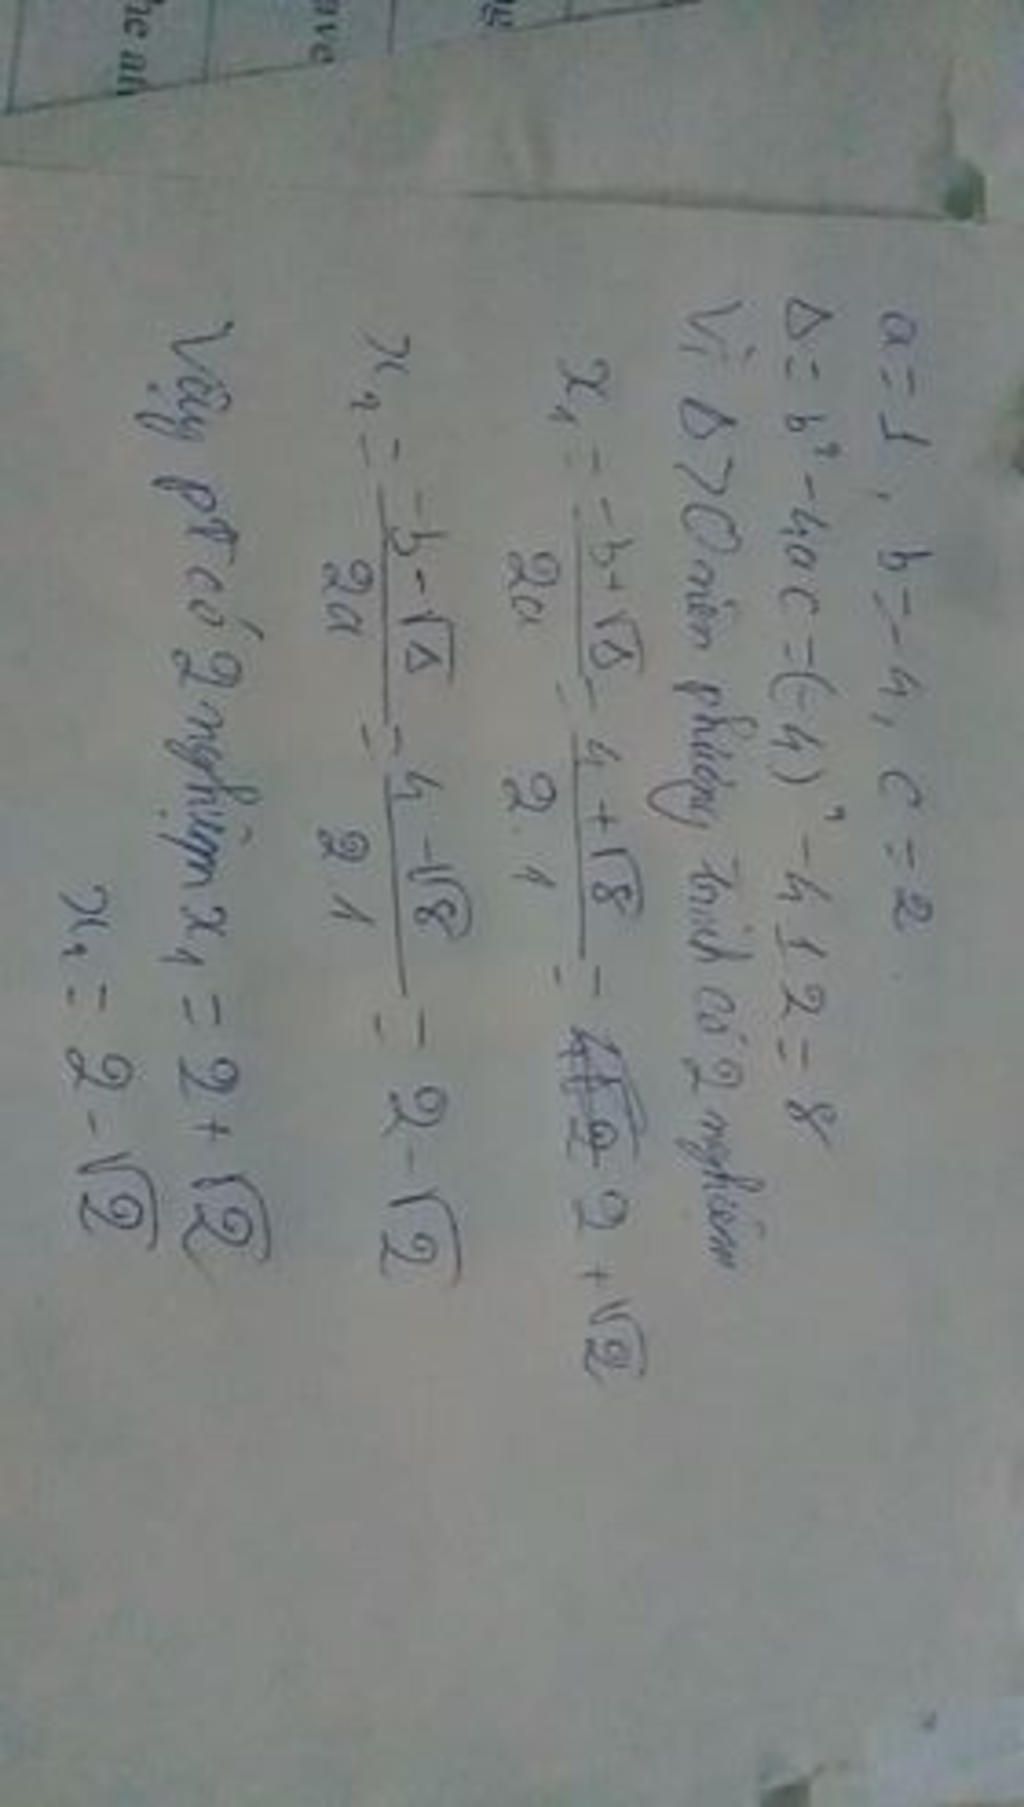 a = 1, b = -4, c = 2
Δ = b² - 4ac = (-4)² - 4.1.2 = 8
Vì Δ > 0 nên phương trình có 2 nghiệm
x₁ = (-b + √Δ)/2a = (4 + √8)/2.1 = 2 + √2
x₂ = (-b - √Δ)/2a = (4 - √8)/2.1 = 2 - √2
Vậy pt có 2 nghiệm x₁ = 2 + √2
x₂ = 2 - √2
he ah
ove